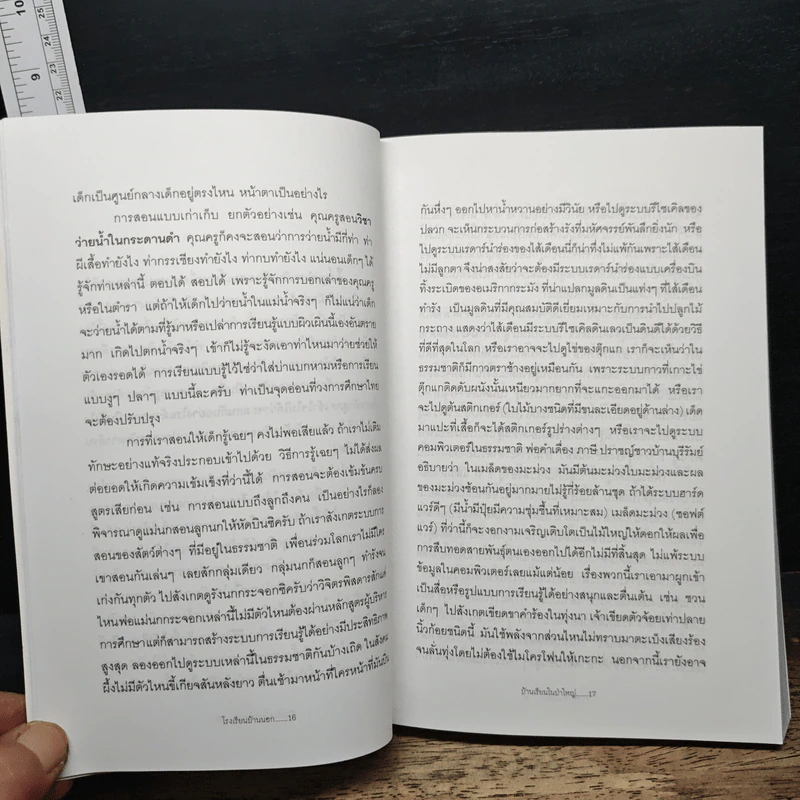 10
9
25
24
23
22
เด็กเป็นศูนย์กลางเด็กอยู่ตรงไหน หน้าตาเป็นอย่างไร
การสอนแบบเก่าเก็บ ยกตัวอย่างเช่น คุณครูสอนวิชา
ว่ายน้ำในกระดานดำ คุณครูก็คงจะสอนว่าการว่ายน้ำมีกี่ท่า ท่า
ผีเสื้อทำยังไง ท่ากรรเชียงทำยังไง ท่ากบทำยังไง แน่นอนเด็กๆ ได้
รู้จักท่าเหล่านี้ ตอบได้ สอบได้ เพราะรู้จักการบอกเล่าของคุณครู
หรือในตำรา แต่ถ้าให้เด็กไปว่ายน้ำในแม่น้ำจริงๆ ก็ไม่แน่ว่าเด็ก
จะว่ายน้ำได้ตามที่รู้มาหรือเปล่าการเรียนรู้แบบผิวเผินนี้เองอันตราย
มาก เกิดไปตกน้ำจริงๆ เข้าก็ไม่รู้จะงัดเอาท่าไหนมาว่ายช่วยให้
ตัวเองรอดได้ การเรียนแบบรู้ไว้ใช่ว่าใส่บ่าแบกหามหรือการเรียน
แบบงูๆ ปลาๆ แบบนี้ละครับ ท่าเป็นจุดอ่อนที่วงการศึกษาไทย
จะต้องปรับปรุง
การที่เราสอนให้เด็กรู้เฉยๆ คงไม่พอเสียแล้ว ถ้าเราไม่เติม
ทักษะอย่างแท้จริงประกอบเข้าไปด้วย วิธีการรู้เฉยๆ ไม่ได้ส่งผล
ต่อยอดให้เกิดความเข้มเชิงที่ว่านี้ได้ การสอนจะต้องเข้มข้นครบ
สูตรเสียก่อน เช่น การสอนแบบถึงลูกถึงคน เป็นอย่างไรก็ลอง
พิจารณาดูแม่นกสอนลูกนกให้หัดบินซิครับ ถ้าเราสังเกตระบบการ
สอนของสัตว์ต่างๆ ที่มีอยู่ในธรรมชาติ เพื่อนร่วมโลกเราไม่มีใคร
เขาสอนกันเล่นๆ เลยสักกลุ่มเดียว กลุ่มนกก็สอนลูกๆ ทำรังจน
เก่งกันทุกตัว ไปสังเกตดูรังนกกระจอกซิครับว่าวิจิตรพิสดารสักแค่
ไหนพ่อแม่นกกระจอกเหล่านี้ไม่มีตัวไหนต้องผ่านหลักสูตรผู้บริหาร
การศึกษาแต่ก็สามารถสร้างระบบการเรียนรู้ได้อย่างมีประสิทธิภาพ
สูงสุด ลองออกไปดูระบบเหล่านี้ในธรรมชาติกันบ้างเถิด ในสังคม
ผึ้งไม่มีตัวไหนขี้เกียจสันหลังยาว ตื่นเช้ามาหน้าที่ใครหน้าที่มันบิน
โรงเรียนบ้านนอก......16
กันหึ่งๆ ออกไปหาน้ำหวานอย่างมีวินัย หรือไปดูระบบรีไซเคิลของ
ปลวก จะเห็นกระบวนการก่อสร้างรังที่มหัศจรรย์พันลึกยิ่งนัก หรือ
ไปดูระบบเรดาร์นำร่องของไส้เดือนนี่ก็น่าทึ่งไม่แพ้กันเพราะไส้เดือน
ไม่มีลูกตา จึงน่าสงสัยว่าจะต้องมีระบบเรดาร์นำร่องแบบเครื่องบิน
ทิ้งระเบิดของอเมริกากระมัง ที่น่าแปลกมูลดินเป็นแท่งๆ ที่ไส้เดือน
ทำรัง เป็นมูลดินที่มีคุณสมบัติดีเยี่ยมเหมาะกับการนำไปปลูกไม้
กระถาง แสดงว่าไส้เดือนมีระบบรีไซเคิลดินเลวเป็นดินดีได้ด้วยวิธี
ที่ดีที่สุดในโลก หรือเราอาจจะไปดูไข่ของตุ๊กแก เราก็จะเห็นว่าใน
ธรรมชาติก็มีกาวตราช้างอยู่เหมือนกัน เพราะระบบกาวที่เกาะไข่
ตุ๊กแกติดดับผนังนั้นเหนียวมากยากที่จะแกะออกมาได้ หรือเรา
จะไปดูต้นสติกเกอร์ (ใบไม้บางชนิดที่มีขนละเอียดอยู่ด้านล่าง) เด็ด
มาแปะที่เสื้อก็จะได้สติกเกอร์รูปร่างต่างๆ หรือเราจะไปดูระบบ
คอมพิวเตอร์ในธรรมชาติ พ่อคำเดื่อง ภาษี ปราชญ์ชาวบ้านบุรีรัมย์
อธิบายว่า ในเมล็ดของมะม่วง มันมีต้นมะม่วงใบมะม่วงและผล
ของมะม่วงซ้อนกันอยู่มากมายไม่รู้กี่ร้อยล้านชุด ถ้าได้ระบบฮาร์ด
แวร์ดีๆ (มีน้ำมีปุ๋ยมีความชุ่มชื้นที่เหมาะสม) เมล็ดมะม่วง (ซอฟต์
แวร์) ที่ว่านี้ก็จะงอกงามเจริญเติบโตเป็นไม้ใหญ่ให้ดอกให้ผลเพื่อ
การสืบทอดสายพันธุ์ตนเองออกไปได้อีกไม่มีที่สิ้นสุด ไม่แพ้ระบบ
ข้อมูลในคอมพิวเตอร์เลยแม้แต่น้อย เรื่องพวกนี้เราเอามาผูกเข้า
เป็นสื่อหรือรูปแบบการเรียนรู้ได้อย่างสนุกและตื่นเต้น เช่น ชวน
เด็กๆ ไปสังเกตเขียดขาคำร้องในทุ่งนา เจ้าเขียดตัวจ้อยเท่าปลาย
นิ้วก้อยชนิดนี้ มันใช้พลังจากส่วนไหนไม่ทราบมาตะเบ็งเสียงร้อง
จนลั่นทุ่งโดยไม่ต้องใช้ไมโครโฟนให้เกะกะ นอกจากนี้เรายังอาจ
บ้านเรียนในป่าใหญ่......17